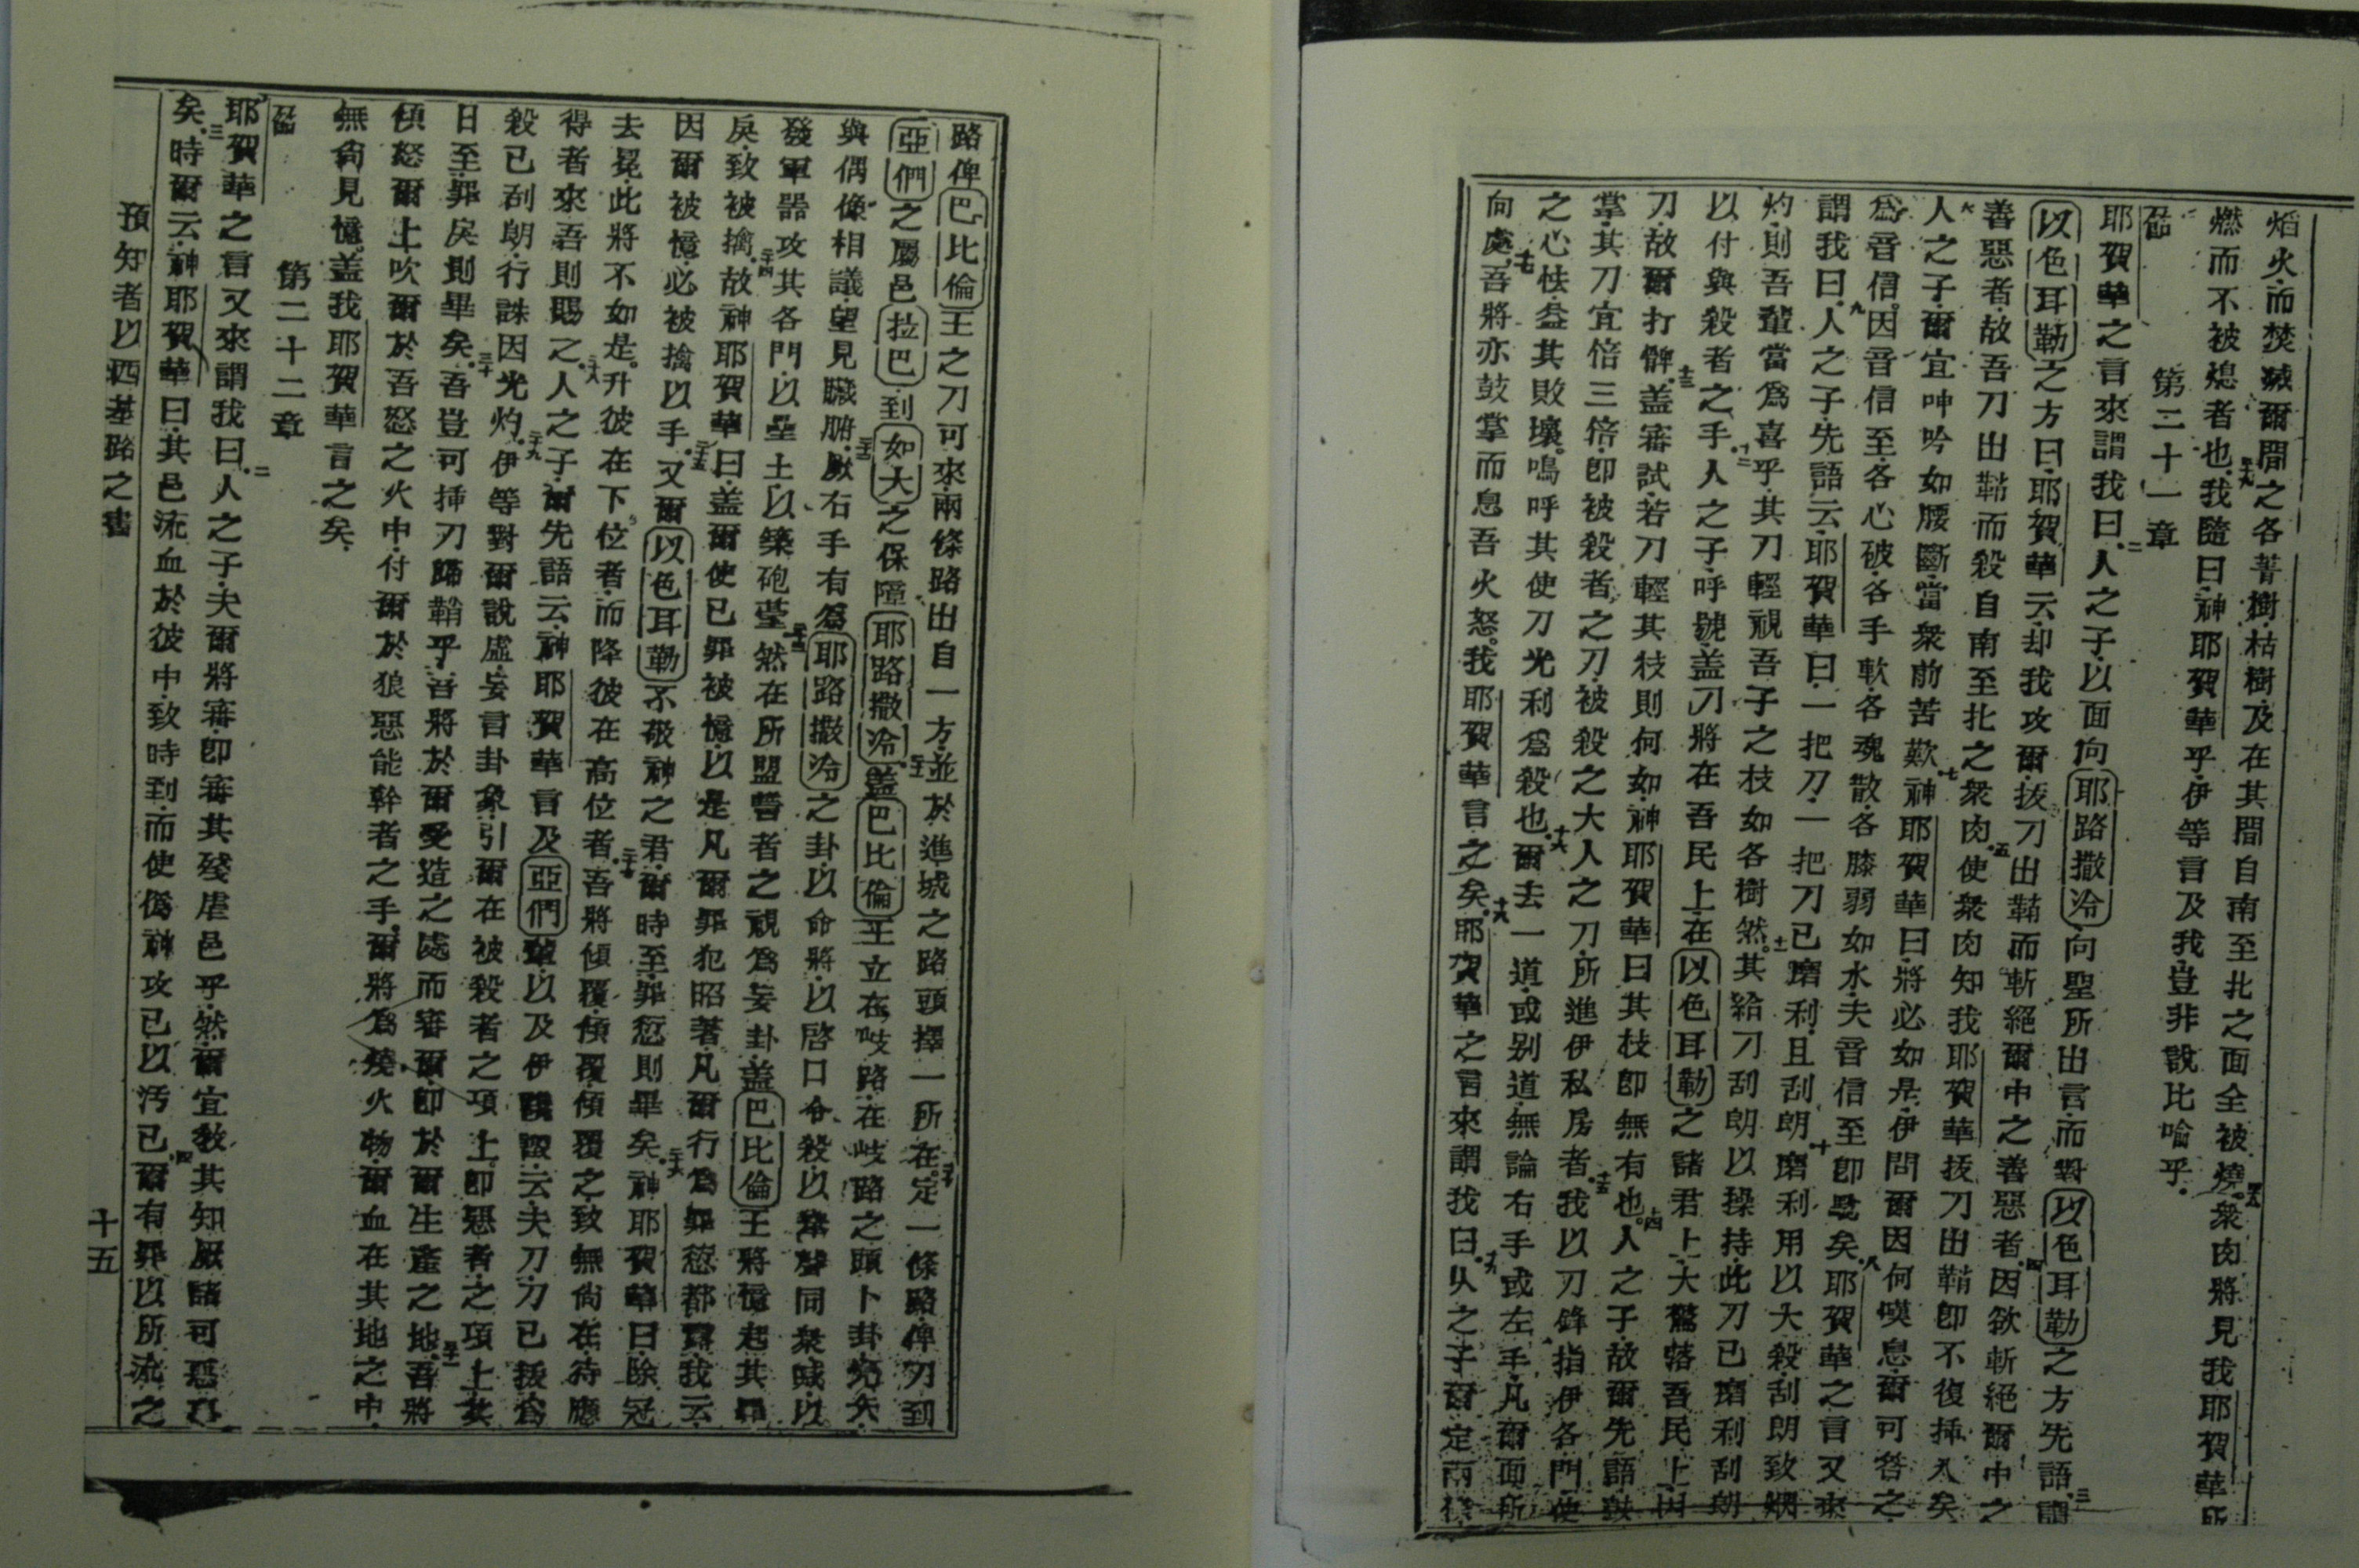 焰火而焚滅爾間之各菁樹枯樹及在其間自南至北之面全被燒衆肉將見我耶賀華所
燃而不被熄者也我隨曰神耶賀華乎伊等言及我豈非說比喻乎
第二十一章
耶賀華之言來謂我曰二人之子以面向耶路撒冷向聖所出言而對以色耳勒之方先語三謂
以色耳勒之方曰耶賀華云却我攻爾拔刀出鞘而斬絕爾中之善惡者四因欲斬絕爾中之
善惡者故吾刀出鞘而殺自南至北之衆肉五使衆肉知我耶賀華拔刀出鞘卽不復挿入矣
六人之子爾宜呻吟如腰斷當衆前苦歎七神耶賀華曰將必如是伊問爾因何嘆息爾可答之
爲音信因音信至各心破各手軟各魂散各膝弱如水夫音信至卽斃矣八耶賀華之言又來
謂我曰九人之子先語云耶賀華曰一把刀一把刀已磨利且刮朗十磨利用以大殺刮朗致烟
灼則吾輩當爲喜乎其刀輕視吾子之枝如各樹然十一其給刀刮朗以操持此刀已磨利刮朗
以付與殺者之手十二人之子呼號盖刀將在吾民上在以色耳勒之諸君上大驚落吾民上因
刀故爾打髀十三盖審試若刀輕其枝則何如神耶賀華曰其枝卽無有也十四人之子故爾先語鼓
掌其刀宜倍三倍卽被殺者之刀被殺之大人之刀所進伊私房者十五我以刀鋒指伊各門使
之心怯益其敗壞嗚呼其使刀光利爲殺也十六爾去一道或别道無論右手或左手凡爾面所
向處十七吾將亦鼓掌而息吾火怒我耶賀華言之矣十八耶賀華之言來謂我曰十九人之子爾定兩條
路俾巴比倫王之刀可來兩條路出自一方並於進城之路頭擇一所在二十定一條路俾刀到
亞們之屬邑拉巴到如大之保障耶路撒冷二十一盖巴比倫王立在岐路在岐路之頭卜卦亮矢
與偶像相議望見臟腑二十二厥右手有爲耶路撒冷之卦以命將以啓口令殺以聲同衆喊以
發軍器攻其各門以壘土以築砲臺二十三然在所盟誓者之視爲妄卦盖巴比倫王將憶起其罪
戾致被擒二十四故神耶賀華曰盖爾使已罪被憶以是凡爾罪犯昭著凡爾行爲罪愆都露我云
因爾被憶必被擒以手二十五又爾以色耳勒不敬神之君爾時至罪愆則畢矣二十六神耶賀華曰除冠
去冕此將不如是升彼在下位者而降彼在高位者二十七吾將傾覆傾覆傾覆之致無尙在待應
得者來吾則賜之二十八人之子爾先語云神耶賀華言及亞們輩以及伊云夫刀刀已拔爲
殺已刮朗行誅因光灼二十九伊等對爾說虛妄言卦象引爾在被殺者之項上卽惡者之項上其
日至罪戾則畢矣三十吾豈可挿刀歸鞘乎吾將於爾受造之處而審爾卽於爾生產之地三十一吾將
傾怒爾上吹爾於吾怒之火中付爾於狼惡能幹者之手爾將爲燒火物爾血在其地之中
無尙見憶盖我耶賀華言之矣
第二十二章
耶賀華之言又來謂我曰二人之子夫爾將審卽審其殘虐邑乎然爾宜敎其知厥諸可惡乃
矣三時爾云神耶賀華曰其邑流血於彼中致時到而使僞神攻已以汚已四爾有罪以所流之
預知者以西基路之書
十五